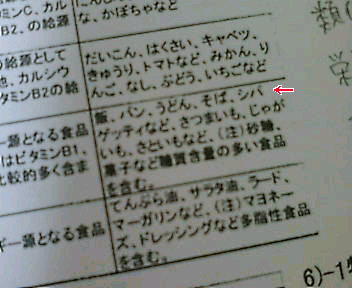 ミンC、カル
B2、の給源
な、かぼちゃなど
給源として
他、カルシウ
タミンB2の給
だいこん、はくさい、キャベツ、
きゅうり、トマトなど、みかん、り
んご、なし、ぶどう、いちごなど
ー源となる食品
はビタミンB1、
比較的多く含ま
飯、パン、うどん、そば、シパ
ゲッティなど、さつまいも、じゃが
いも、さといもなど、(注)砂糖、
菓子など糖質含量の多い食品
を含む。
ギー源となる食品
てんぷら油、サラタ油、ラード、
マーガリンなど、(注)マヨネー
ズ、ドレッシングなど多脂性食品
を含む。
類
栄
6)-1